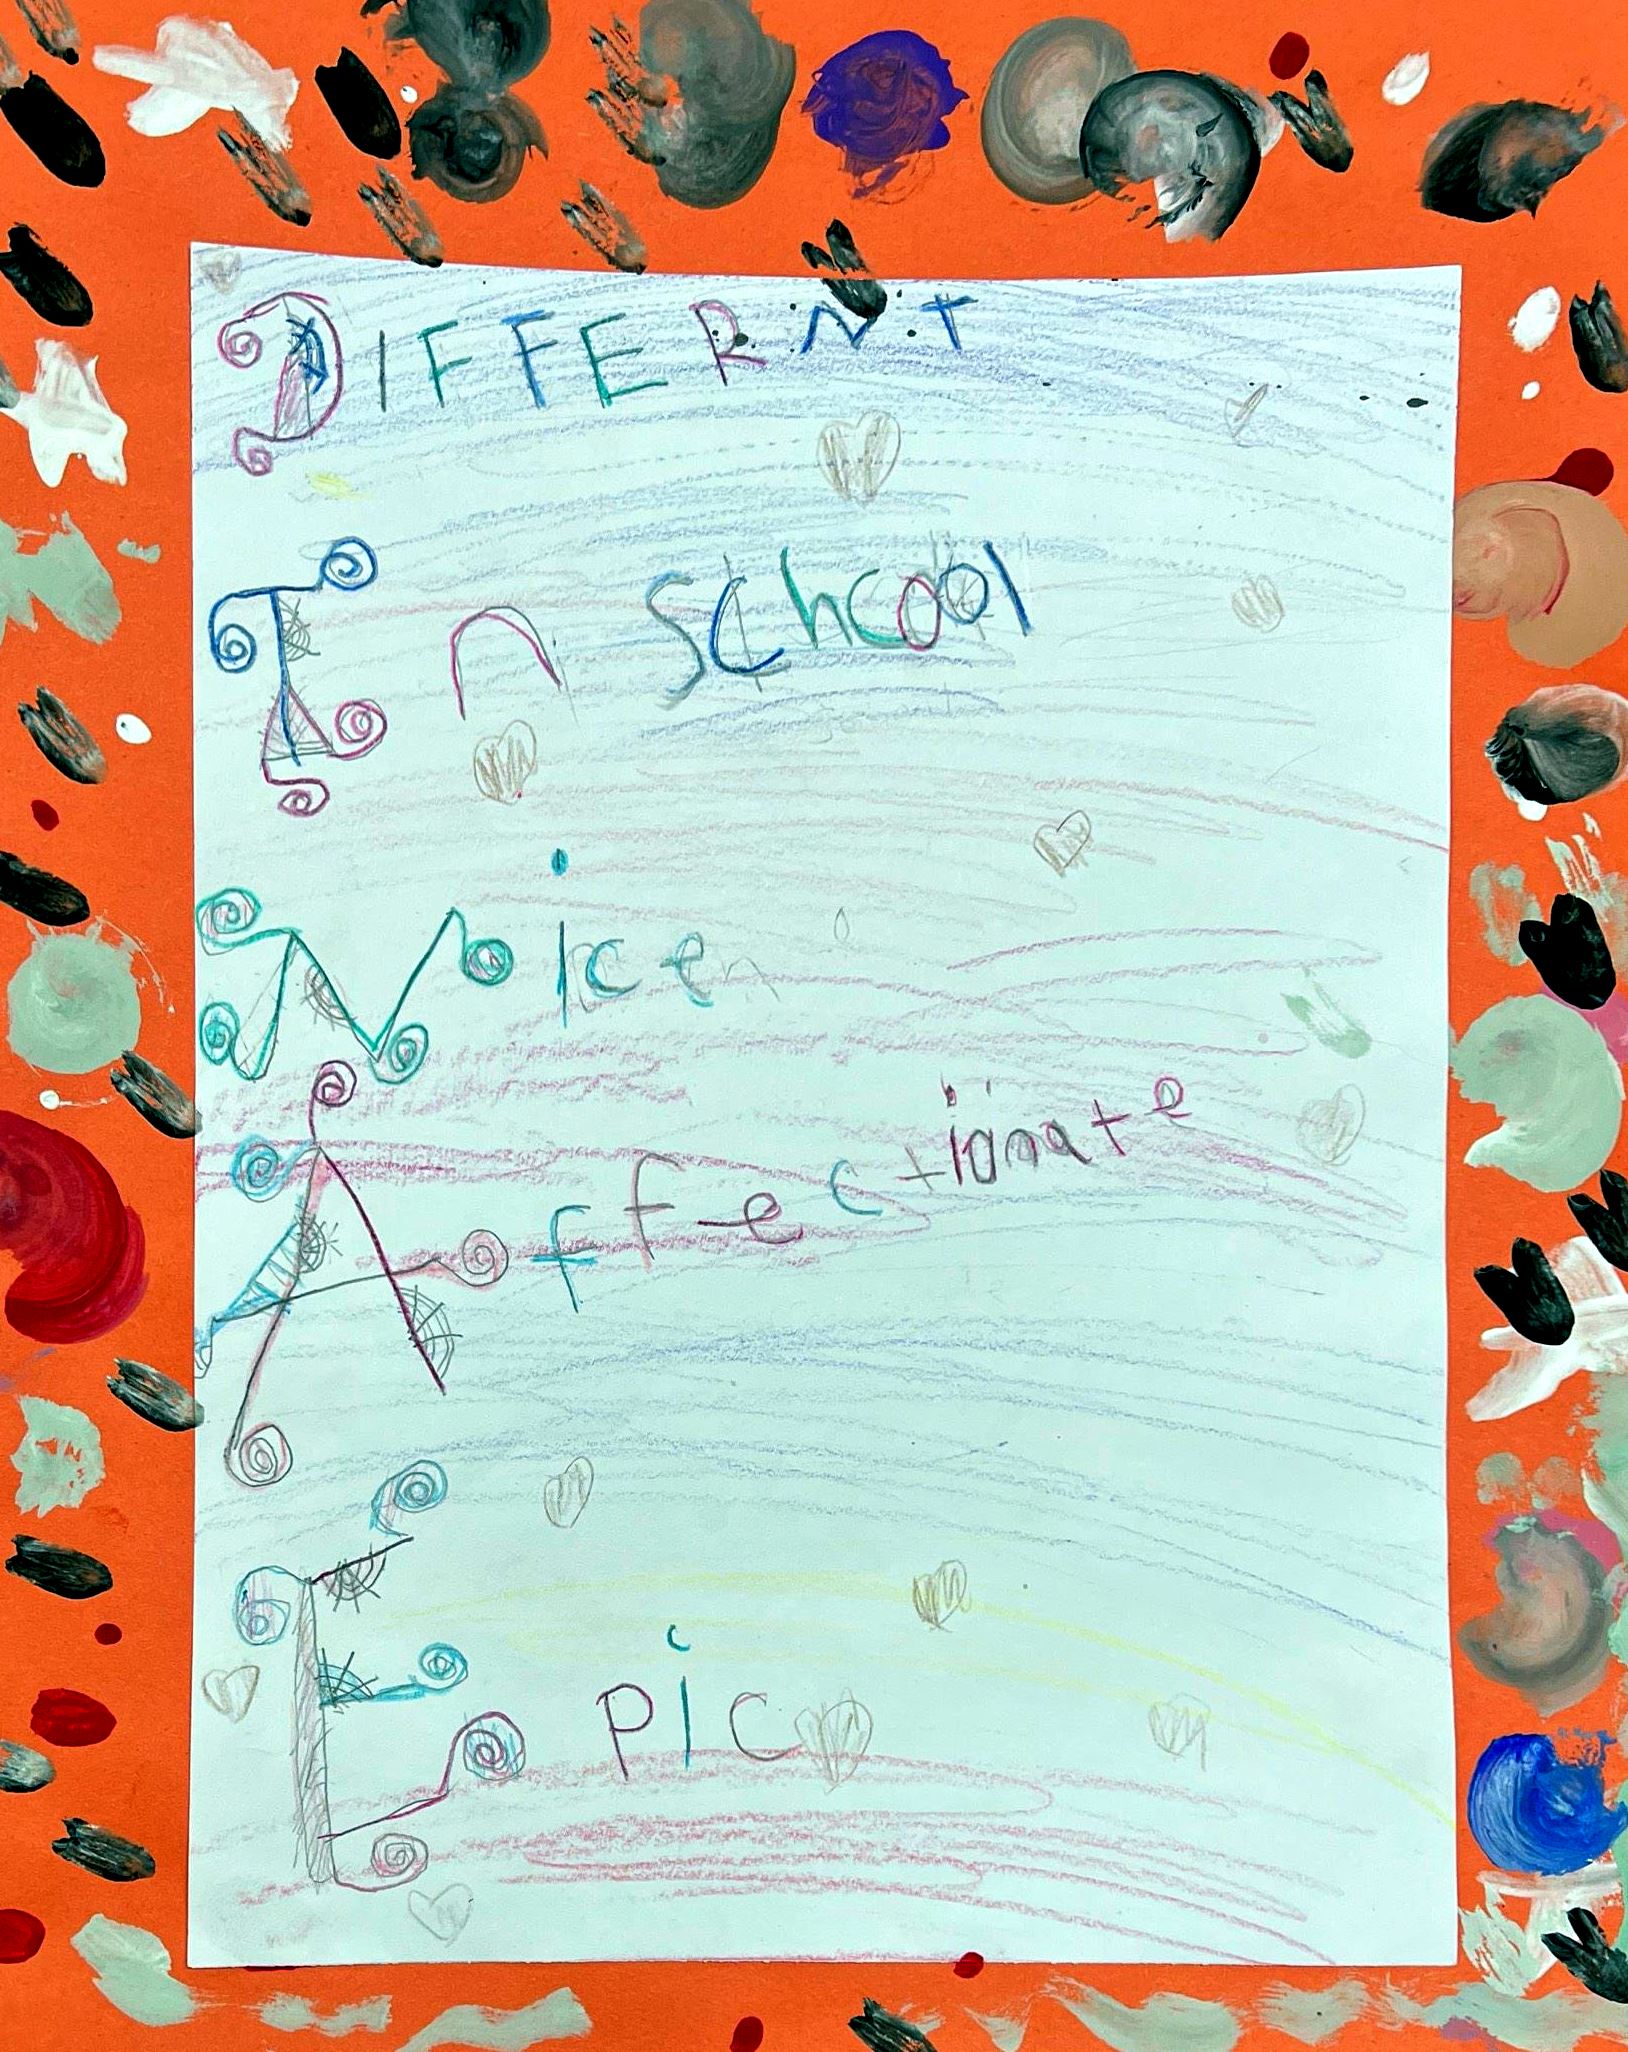 DIFFERNT
In school
Nice
Affectionate
Epic